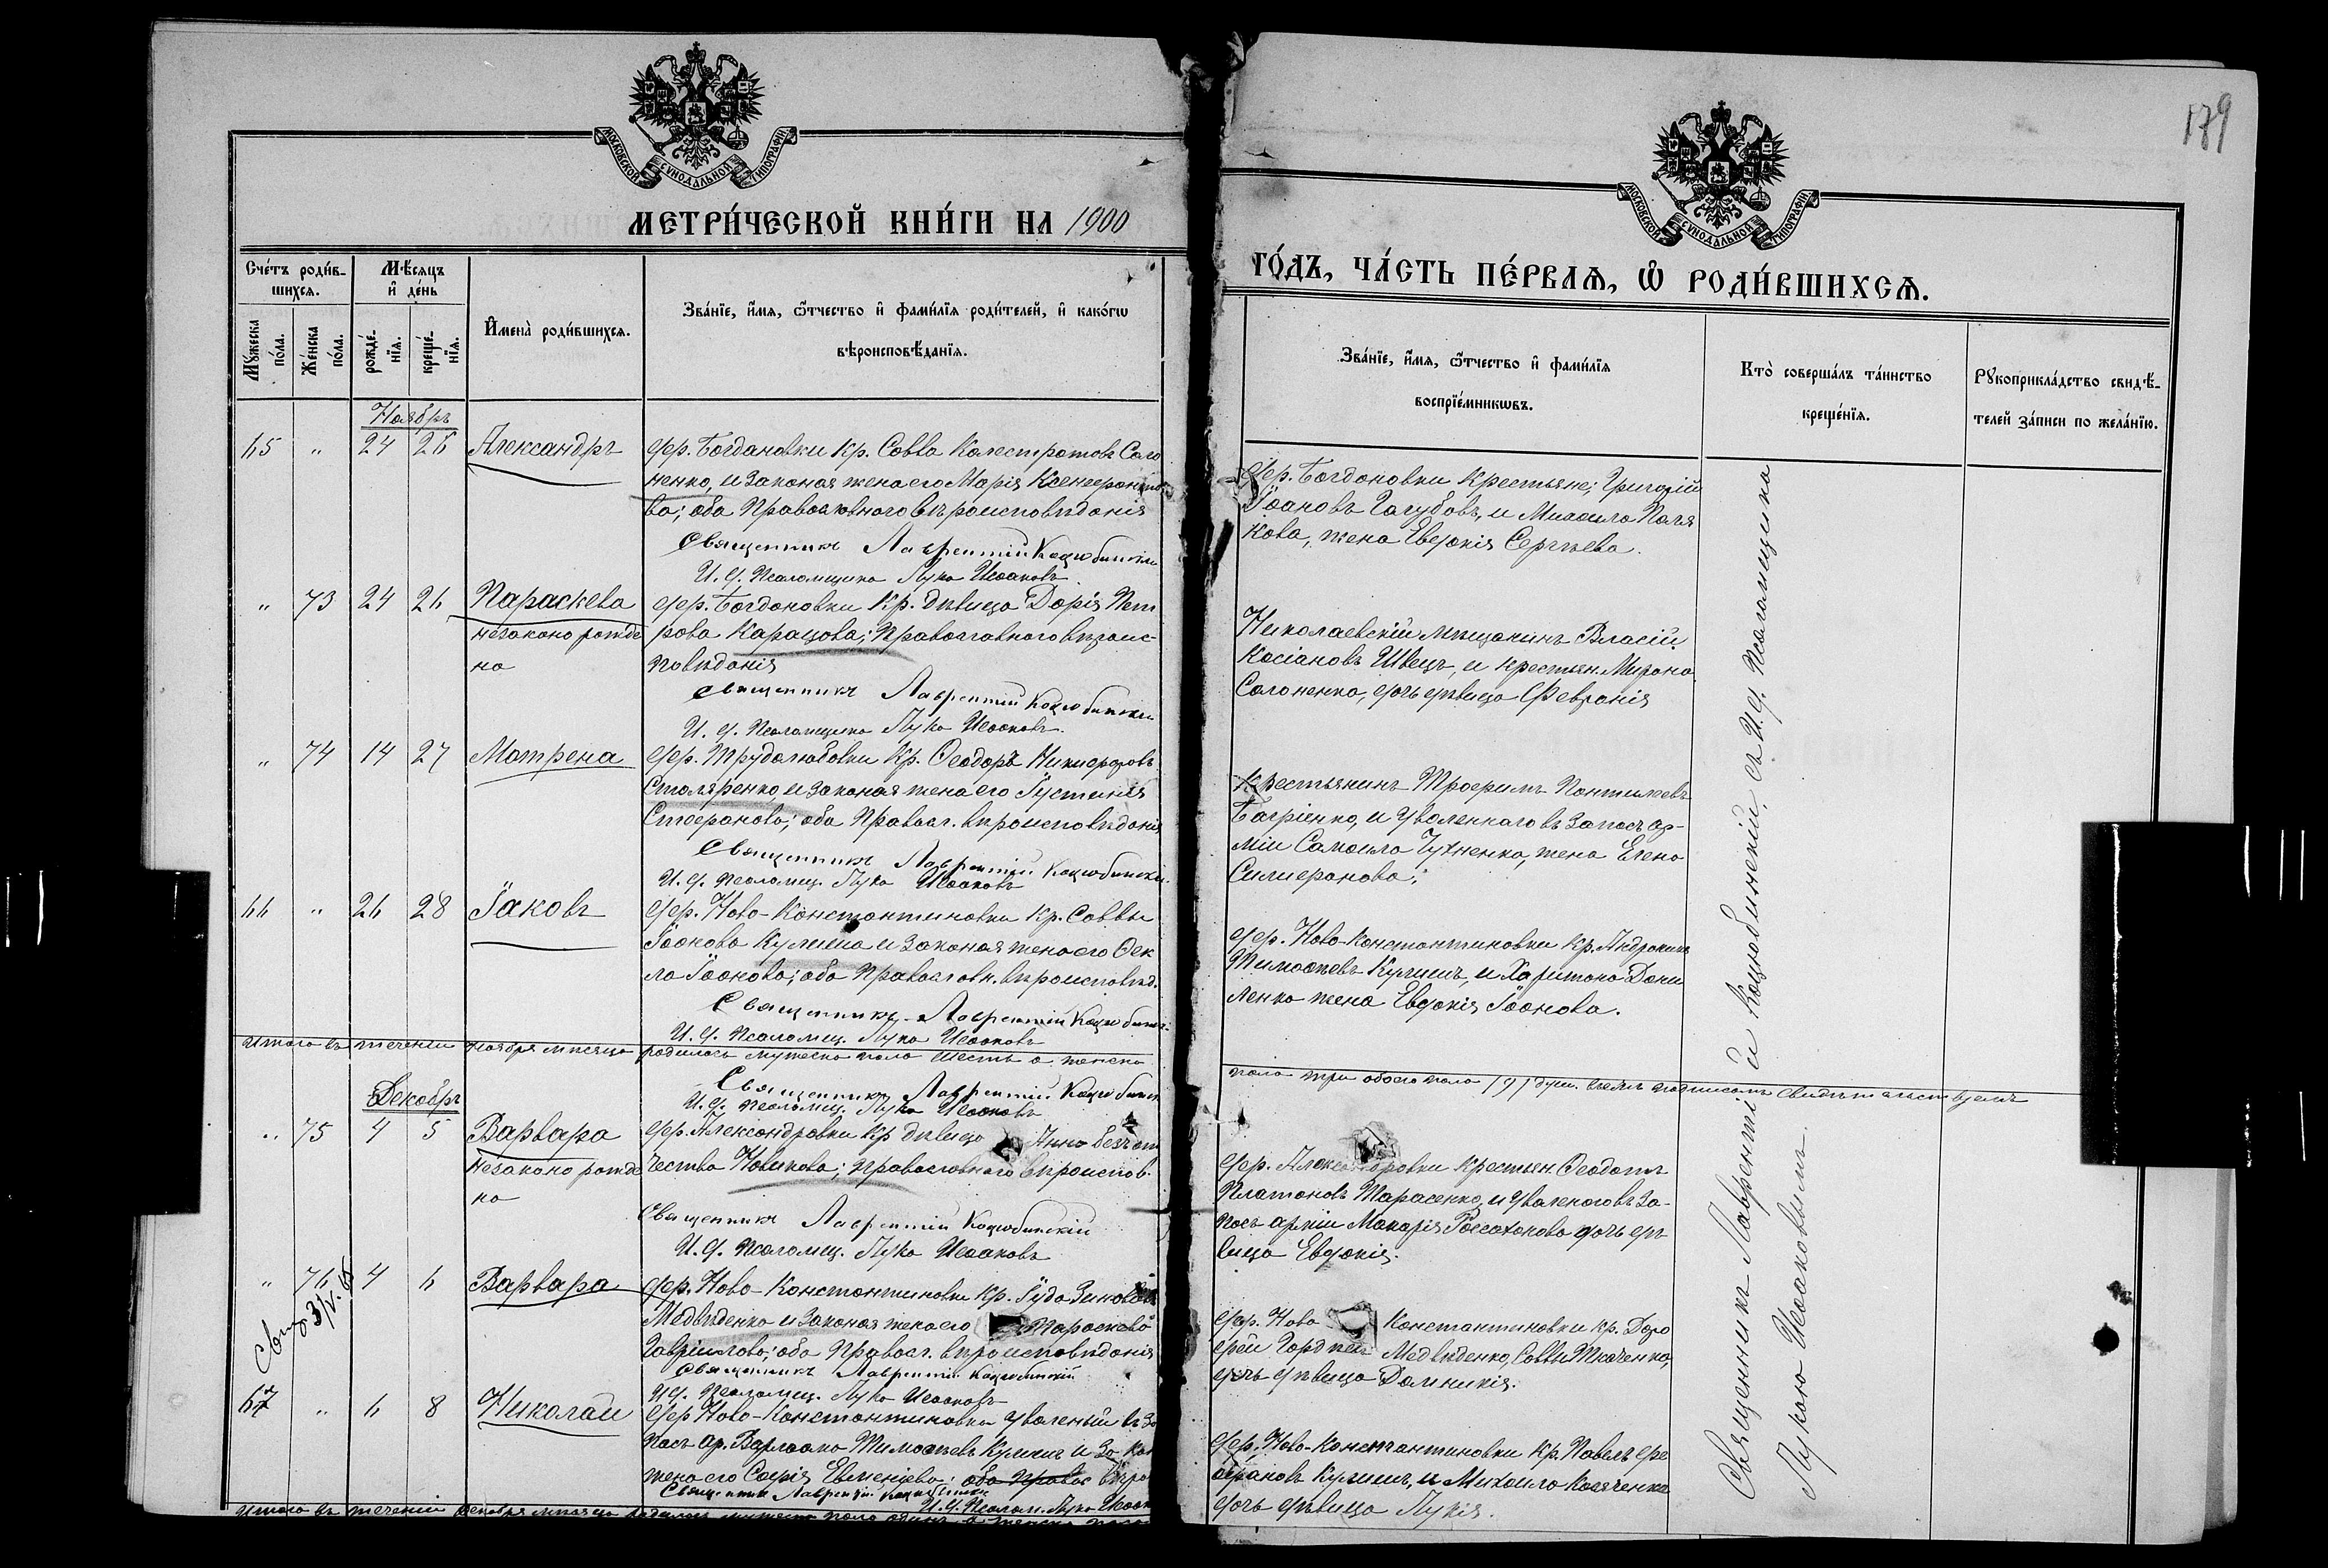 МОСКОВСКОЙ СѴНОДАЛЬНОЙ ТИПОГРАФІИ
МЕТРИ́ЧЕСКОЙ КНИ́ГИ НА 1900
Сче́тъ роди́в-
шихсѧ.
Мѣ́сѧцъ
и҆ де́нь
Мꙋ́жеска
по́ла.
Же́нска
по́ла.
рожде́-
нїѧ.
креще́-
нїѧ.
И҆мена̀ роди́вшихсѧ.
Зва́нїе, и҆́мѧ, ѻ҆́тчество и҆ фами́лїѧ роди́телей, и҆ како́гѡ
вѣроисповѣ́данїѧ.
Ноябрь
65 " 24 26 Александръ
дер. Богдановки кр. Савва Калестратовъ Соло
ненко, и законая жена его Марія Ксенофонто
ва; оба Православного вѣроисповѣданія
Священникъ Лаврентій Коцюбинскій
И. д. Псаломщика Лука Исааковъ
" 73 24 26 Параскева
незаконо рожде
на
дер. Богдановки Кр. дѣвица Дарія Пет
рова Карацова; Православного вѣроис-
повѣданія
Священникъ Лаврентій Коцюбинскій
И. д. Псаломщика Лука Исааковъ.
" 74 14 27 Матрена
дер. Трудолюбовки Кр. Ѳеодоръ Никифоровъ
Столяренко и законая жена его Іустинія
Стефанова; оба Правосл. вѣроисповѣданія
Священникъ Лаврентій Коцюбинскій.
И. д. псаломщ. Лука Исааковъ
66 " 26 28 Іаковъ
дер. Ново-Константиновки Кр. Саввы
Іоанова Кулиша и законая жена его Ѳек
ла Іоанова; оба Православн. вѣроисповѣд.
Священникъ Лаврентій Коцюбинск.
И. д. Псаломщ. Лука Исааковъ
Итого въ теченіи ноября мѣсяца родилось мужеска пола шесть а женска
Священникъ Лаврентій Коцюбинск
И. д. псаломщ. Лука Исааковъ
Декабрь
" 75 4 5 Варвара
незаконо рожде
на
дер. Александровки Кр дѣвица Анна безъ от
чества Новикова; православного вѣроиспов.
Священникъ Лаврентій Коцюбинскій
И. д. Псаломщ. Лука Исааковъ
" 76 4 6 Варвара
дер. Ново-Константиновки Кр. Іуда Зиновіевъ
Медвѣденко и законая жена его Параскева
Гавріилова; оба Правосл. вѣроисповѣданія
Священникъ Лаврентій Коцюбинскій
И.д. Псаломщ. Лука Исааковъ
67 " 6 8 Николай
дер Ново-Константиновки уволеный въ за
пасъ ар. Варлаамъ Тимоѳеевъ Кулишъ и за кон
жена его Софія Евменіева; оба правос вѣро
Священник Лаврентій Коцюбинскі
И. д. Псалом. Лука Исаак
Итого въ теченіи декабря мѣсяца родилось мужеска пола одинъ а женска пола
179
МОСКОВСКОЙ СѴНОДАЛЬНОЙ ТИПОГРАФІИ
ГО́ДЪ, ЧА́СТЬ ПЕ́РВАѦ, Ѡ҆ РОДИ́ВШИХСѦ.
Зва́нїе, и҆́мѧ, ѻ҆́тчество и҆ фами́лїѧ
воспрїе́мникѡвъ.
Кто̀ соверша́лъ та́инство
креще́нїѧ.
Рꙋкоприкла́дство свидѣ́-
телей за́писи по жела́нїю.
дер. Богдановки Крестьяне; Григорій
Іоановъ Голубовъ, и Михаила Поля
кова, жена Евдокія Сергѣева.
Николаевскій мѣщанинъ Власій
Касіановъ Швецъ, и крестьян. Мирона
Солоненко, дочь дѣвица Февронія
Крестьянинъ Трофимъ Пантилеевъ
Багріенко, и уволеннаго въ запасъ ар-
міи Самоила Чухненко, жена Елена
Силифанова;
дер. Ново-Константиновки Кр. Андроникъ
Тимоѳеевъ Кулишъ, и Харитона Дани
ленко жена Евдокія Іоанова.
пола три обоего пола (9) душ. въ чемъ подписомъ свидѣтельствуемъ
дер. Александровки крестьян. Ѳеодотъ
Платоновъ Тарасенко, и уволеного въ за-
пасъ арміи Макарія Россоханова дочь дѣ
вица Евдокія.
дер. Ново Константиновки кр. Доро
фей Гордѣевъ Медвѣденко, Саввы Ткаченко,
дочь дѣвица Домникія.
дер. Ново-Константиновки Кр. Павелъ
Кулишъ, и Михаила Косяченко
дочь дѣвица Лукія.
Священникъ Лаврентій Коцюбинскій, съ И. д. Псаломщика
Лукою Исааковымъ.